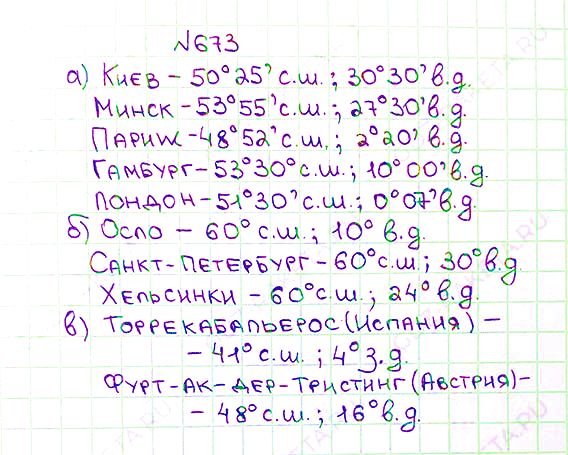 №673
а) Киев – 50°25' с.ш.; 30°30' в.д.
Минск – 53°55' с.ш.; 27°30' в.д.
Париж – 48°52' с.ш.; 2°20' в.д.
Гамбург – 53°30° с.ш.; 10°00' в.д.
Лондон – 51°30' с.ш.; 0°07' в.д.
б) Осло – 60° с.ш.; 10° в.д.
Санкт-Петербург – 60° с.ш.; 30° в.д.
Хельсинки – 60° с.ш.; 24° в.д.
в) Торрекабальерос (Испания) –
– 41° с.ш.; 4° з.д.
Фурт-ак-дер-Тристинг (Австрия) –
– 48° с.ш.; 16° в.д.